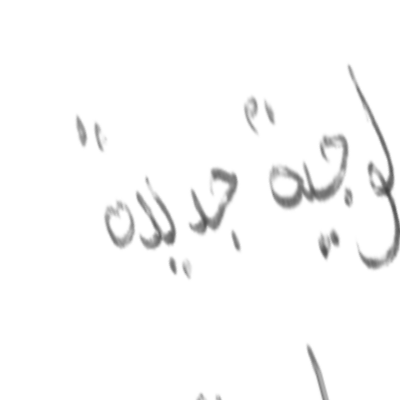 لوجية جديدة